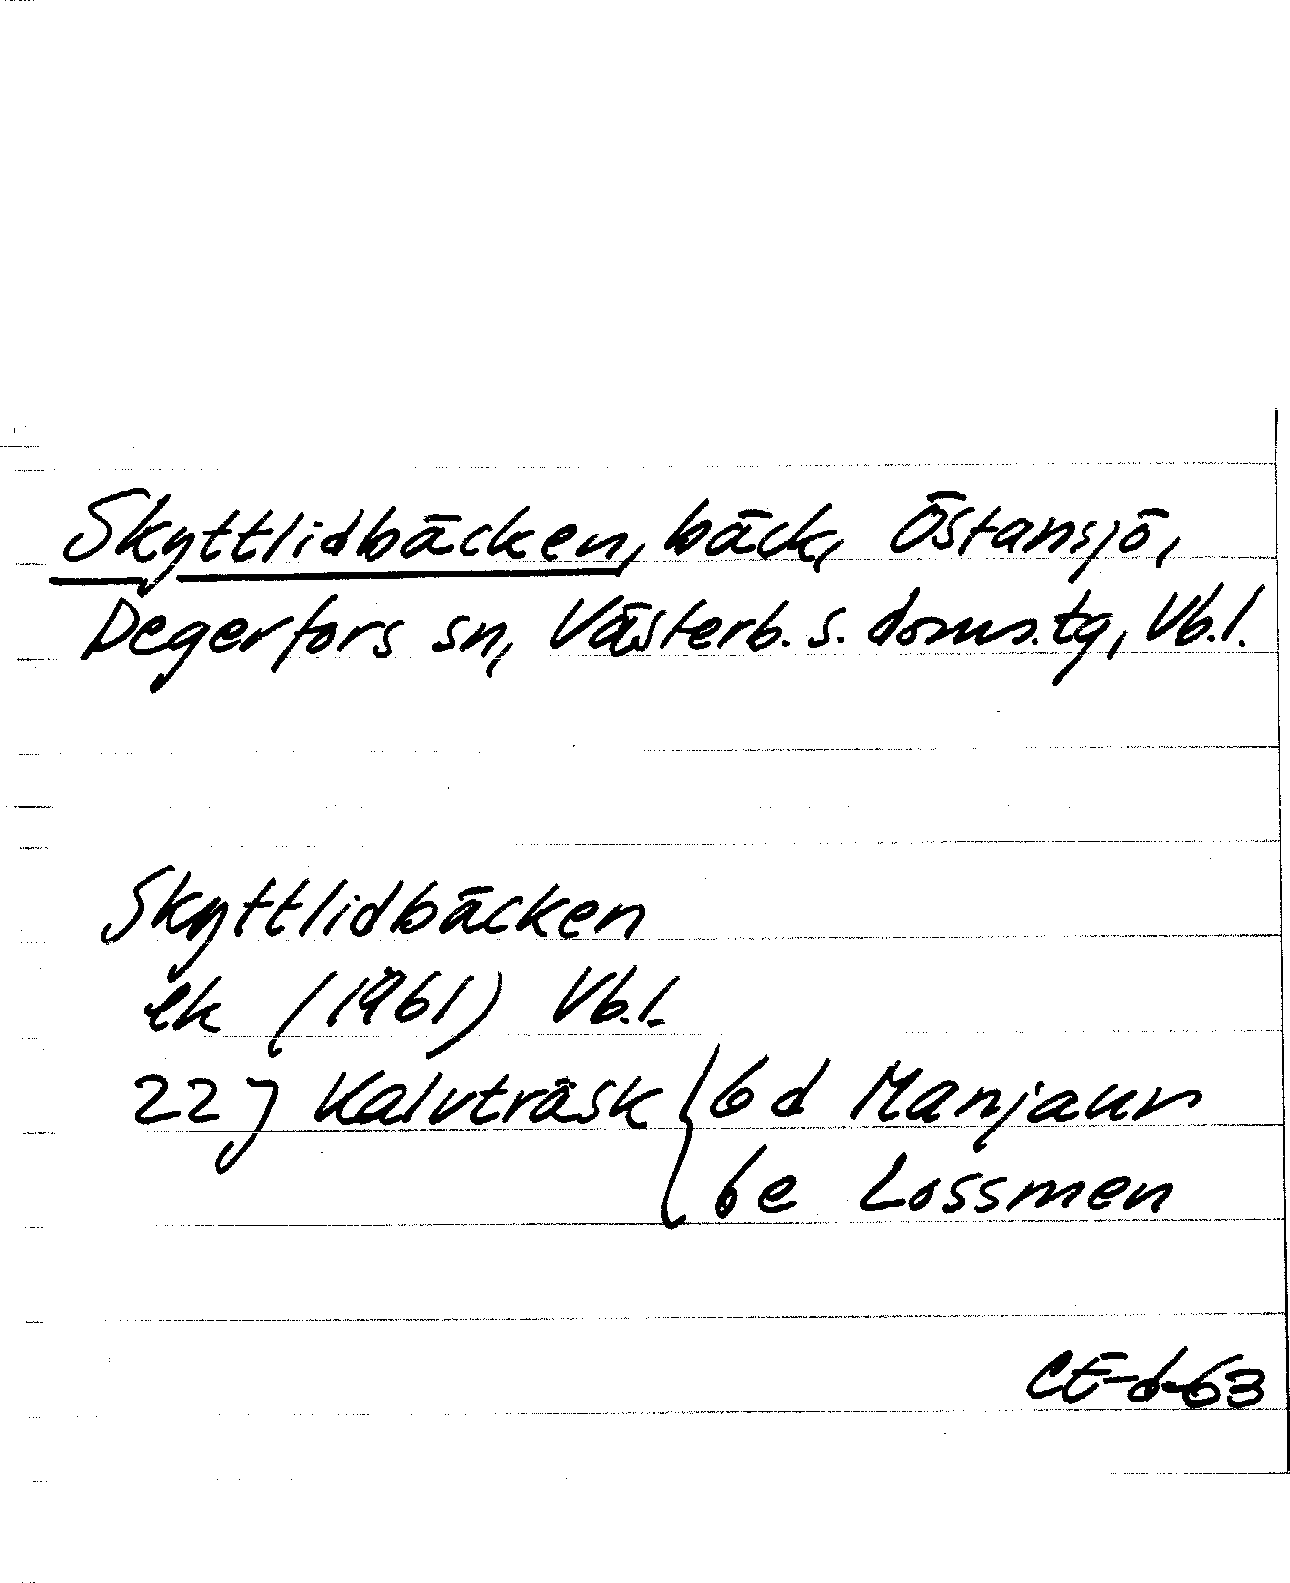 Skyttlidbäcken, bäck, Östansjö,
Degerfors sn, Västerb. s. doms.tg, Vb.l.
Skyttlidbäcken
ek (1961) Vb.l.
22 J Kalvträsk { 6 d Manjaur
6e Lossmen
CE-d-63